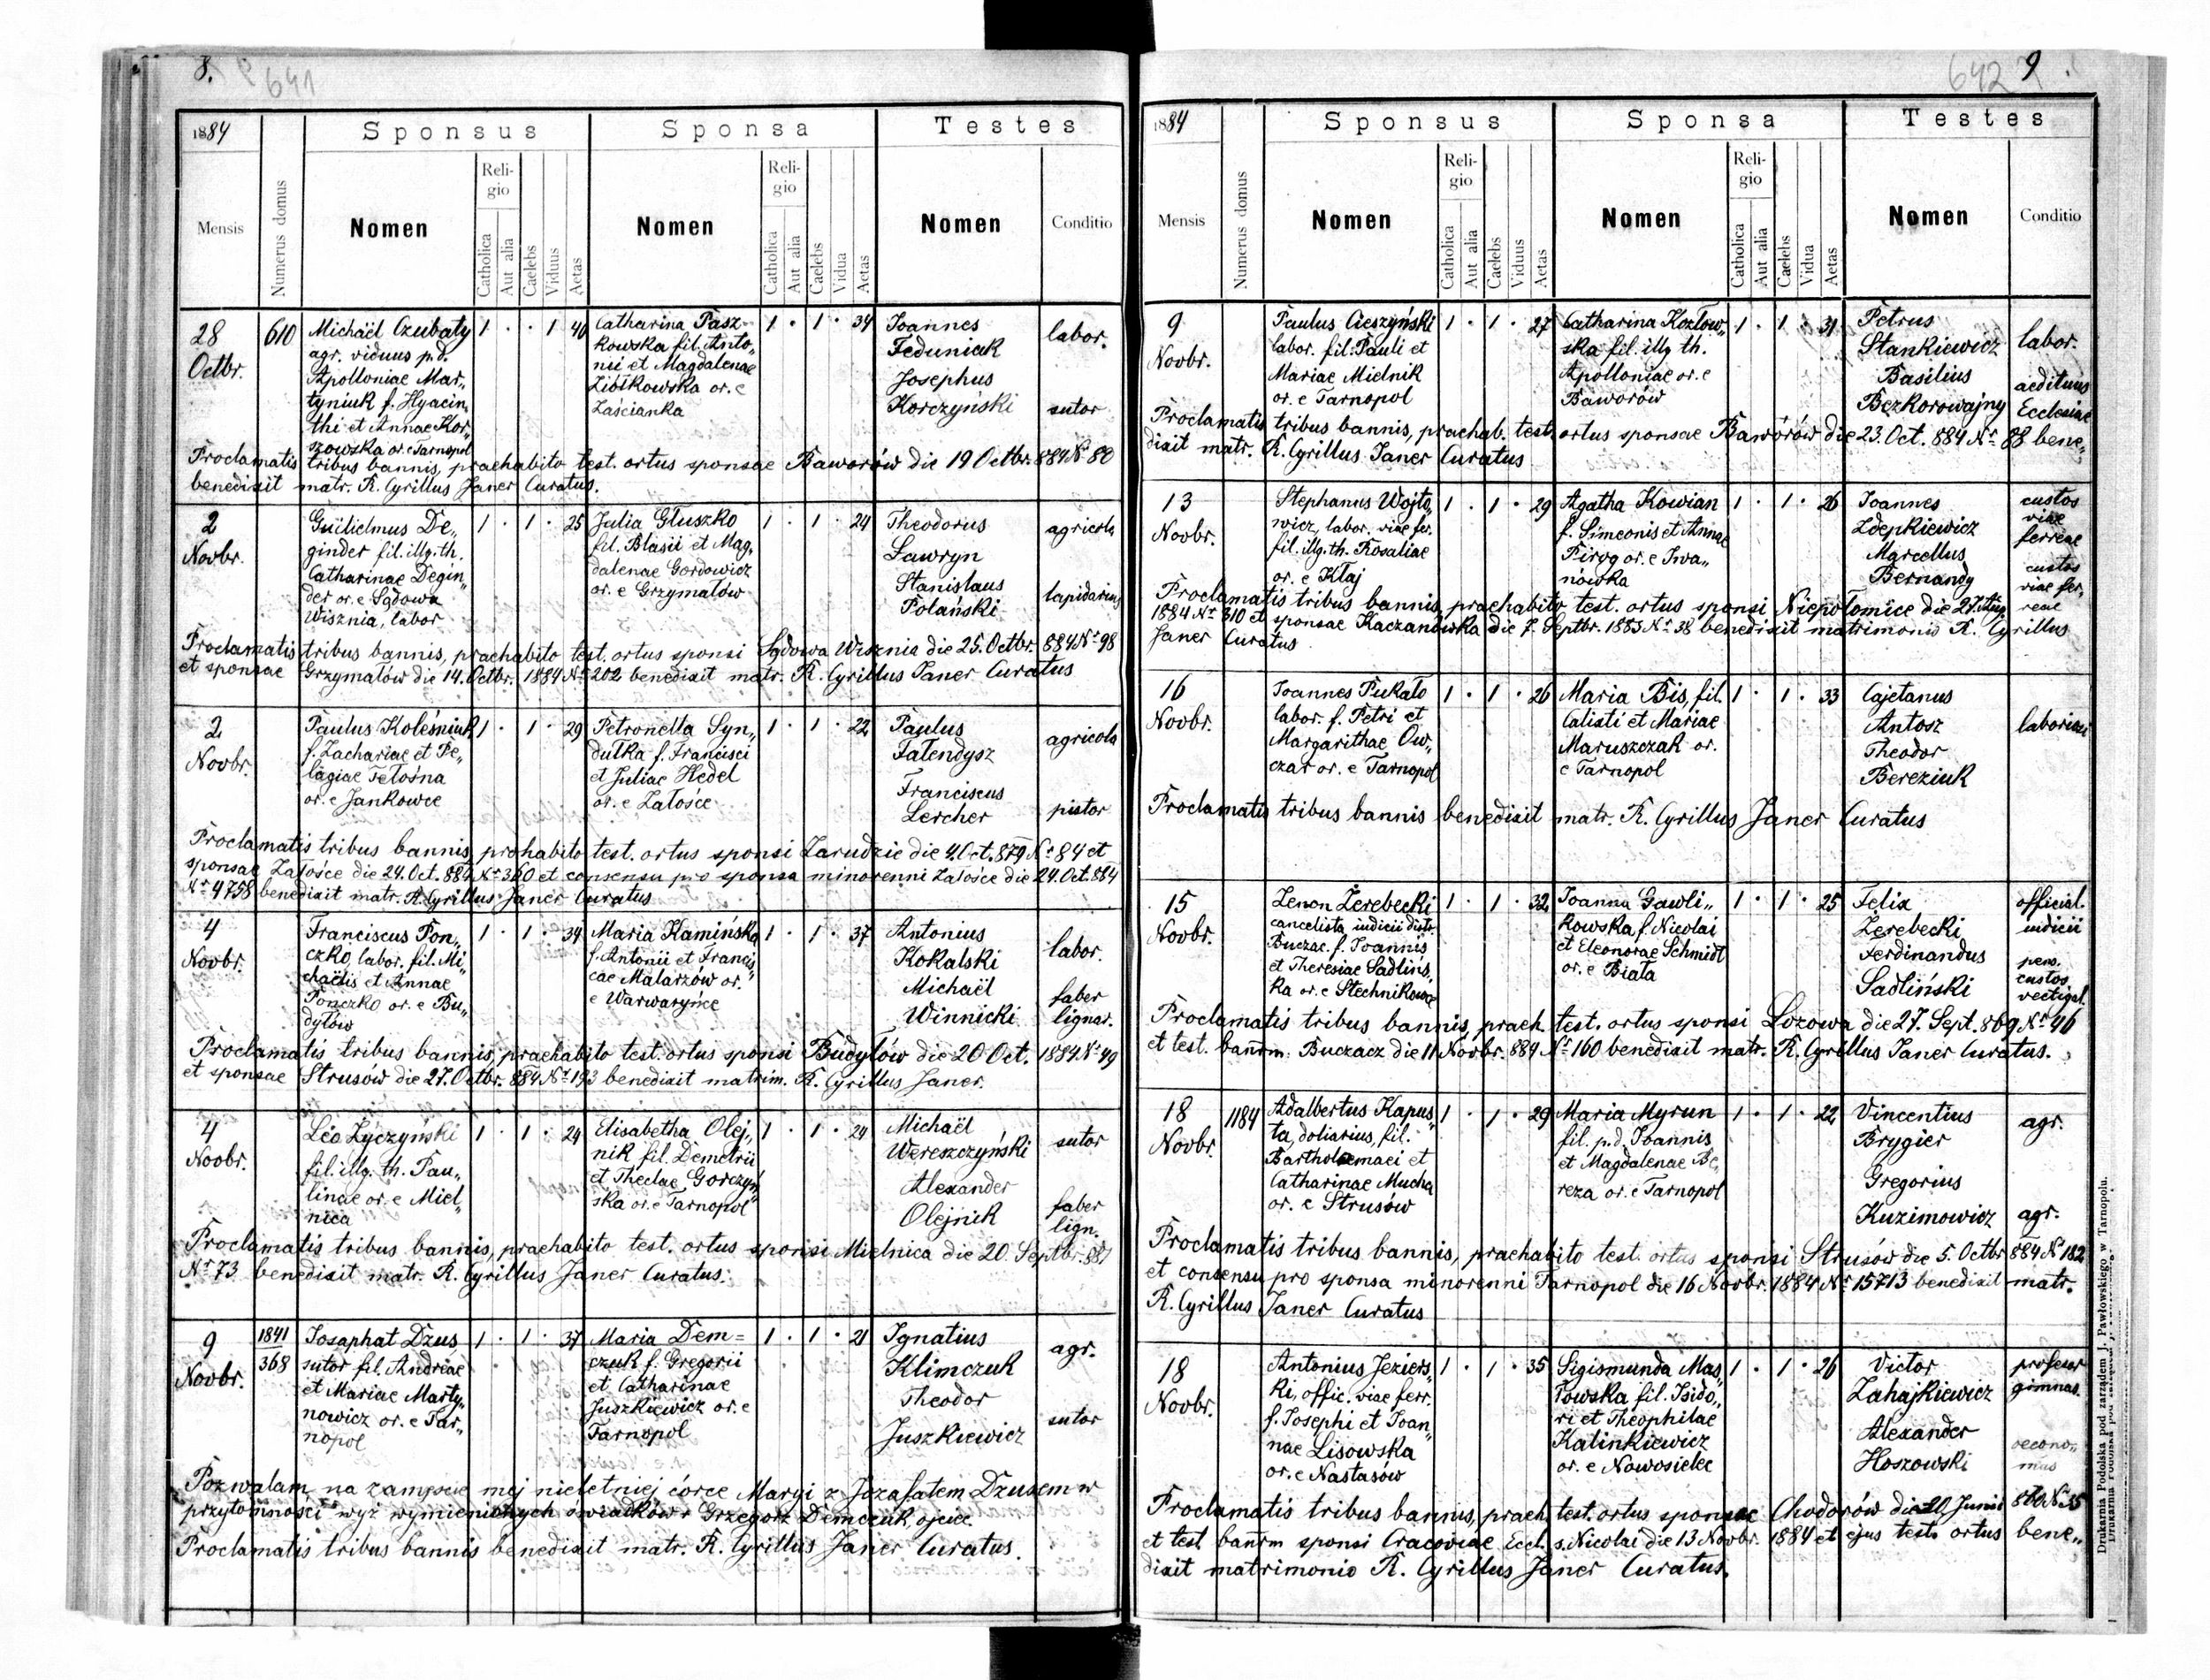 8.
641
1884
Sponsus
Sponsa
Testes
Mensis
Numerus domus
Nomen
Religio
Catholica
Aut alia
Caelebs
Viduus
Aetas
Nomen
Religio
Catholica
Aut alia
Caelebs
Vidua
Aetas
Nomen
Conditio
28
Octbr.
610
Michaël Czubaty
agr. viduus p.d.
Apolloniae Mar„
tyniuk f. Hyacin„
thi et Annae Kor„
szowska or. e Tarnopol
1 · · 1 40
Catharina Pasz„
kowska fil. Anto„
nii et Magdalenae
Ziółkowska or. e
Zaścianka
1 · 1 · 34
Joannes
Feduniak
Josephus
Korczyński
labor.
sutor
Proclamatis tribus bannis, praehabito test. ortus sponsae Baworów die 19 Octbr. 884 Nr 80
benedixit matr. R. Cyrillus Janer Curatus.
2
Novbr.
Guilielmus De„
ginder fil. illg. th.
Catharinae Degin„
der or. e Sądowa
Wisznia, labor
1 · 1 · 25
Julia Głuszko
fil. Blasii et Mag„
dalenae Gordowicz
or. e Grzymałów
1 · 1 · 24
Theodorus
Ławryn
Stanislaus
Polański
agricola
lapidarius
Proclamatis tribus bannis, praehabito test. ortus sponsi Sądowa Wisznia die 25. Octbr. 884 Nr 98
et sponsae Grzymałów die 14. Octbr. 1884 Nr 202 benedixit matr. R. Cyrillus Janer Curatus
2
Novbr.
Paulus Koleśniuk
f. Zachariae et Pe„
lagiae Fełośna
or. e Jankowce
1 · 1 · 29
Petronella Syn„
dutka f. Francisci
et Juliae Hedel
or. e Załośce
1 · 1 · 22
Paulus
Falendysz
Franciscus
Lercher
agricola
pistor
Proclamatis tribus bannis, prohabito test. ortus sponsi Zarudzie die 4. Oct. 879 Nr 84 et
sponsae Załośce die 24. Oct. 884 Nr 360 et consensu pro sponsa minorenni Załośce die 24. Oct. 884
Nr 4758 benedixit matr. R. Cyrillus Janer Curatus
4
Novbr.
Franciscus Pon„
czko, labor. fil. Mi„
chaëlis et Annae
Ponczko or. e Bu„
dyłów
1 · 1 · 34
Maria Kamińska
f. Antonii et Francis„
cae Malarzów or.
e Warwaryńce
1 · 1 · 37
Antonius
Kokalski
Michaël
Winnicki
labor.
faber
lignar.
Proclamatis tribus bannis, praehabito test. ortus sponsi Budyłów die 20 Oct. 1884. Nr 49
et sponsae Strusów die 27. Octbr. 884 Nr 193 benedixit matrim. R. Cyrillus Janer.
4
Novbr.
Leo Życzyński
fil. illg. th. Pau„
linae or. e Miel„
nica
1 · 1 · 24
Elisabetha Olej„
nik fil. Demetrii
et Theclae Gorczyń„
ska or. e Tarnopol
1 · 1 · 24
Michaël
Wereszczyński
Alexander
Olejnik
sutor
faber
lign.
Proclamatis tribus bannis, praehabito test. ortus sponsi Mielnica die 20 Septbr.
Nr 73 benedixit matr. R. Cyrillus Janer Curatus.
9
Novbr.
1841
368
Josaphat Dzus
sutor fil. Andreae
et Mariae Marty„
nowicz or. e Tar„
nopol
1 · 1 · 37
Maria Dem=
czuk f. Gregorii
et Catharinae
Juszkiewicz or. e
Tarnopol
1 · 1 · 21
Ignatius
Klimczuk
Theodor
Juszkiewicz
agr.
sutor
Pozwalam na zamęscie mej nieletniej córce Maryi z Józafatem Dzusem w
przytomności wyż wymienionych świadków Grzegorz Demczuk, ojciec.
Proclamatis tribus bannis benedixit matr. R. Cyrillus Janer Curatus.
642
9
1884
Sponsus
Sponsa
Testes
Mensis
Numerus domus
Nomen
Religio
Catholica
Aut alia
Caelebs
Viduus
Aetas
Nomen
Religio
Catholica
Aut alia
Caelebs
Vidua
Aetas
Nomen
Conditio
9
Novbr.
Paulus Cieszyński
labor. fil. Pauli et
Mariae Mielnik
or. e Tarnopol
1 · 1 · 27
Catharina Kozłow„
ska fil. illg. th.
Apolloniae or. e
Baworów
1 · 1 · 31
Petrus
Stankiewicz
Basilius
Bezkorowajny
labor.
aedituus
Ecclesiae
Proclamatis tribus bannis, praehab. test. ortus sponsae Baworów die 23. Oct. 884 Nr 88 bene„
dixit matr. R. Cyrillus Janer Curatus
13
Novbr.
Stephanus Wojto„
wicz, labor. viae fer.
fil. illg. th. Rosaliae
or. e Kłaj
1 · 1 · 29
Agatha Kowian
f. Simeonis et Annae
Pirog or. e Iwa„
nówka
1 · 1 · 26
Joannes
Zdepkiewicz
Marcellus
Bernandy
custos
viae
ferreae
custos
viae fer„
reae
Proclamatis tribus bannis, praehabito test. ortus sponsi Niepołomice die 27. Aug.
1884 Nr 310 et sponsae Kaczanówka die 7. Septbr. 1883 Nr 38 benedixit matrimonio R. Cyrillus
Janer Curatus
16
Novbr.
Joannes Pukało
labor. f. Petri et
Margarithae Ow„
czar or. e Tarnopol
1 · 1 · 26
Maria Bis, fil.
Calixti et Mariae
Maruszczak or.
e Tarnopol
1 · 1 · 33
Cajetanus
Antosz
Theodor
Bereziuk
laboriosi
Proclamatis tribus bannis benedixit matr. R. Cyrillus Janer Curatus
15
Novbr.
Zenon Zerebecki
cancelista iudicii distr.
Buczac. f. Joannis
et Theresiae Sadlińs„
ka or. e Stechnikowce
1 · 1 · 32
Joanna Gawli„
kowska f. Nicolai
et Eleonorae Schmidt
or. e Biała
1 · 1 · 25
Felix
Zerebecki
Ferdinandus
Sadliński
official.
iudicii
pens.
custos
vectigal.
Proclamatis tribus bannis, praeh. test. ortus sponsi Łozowa die 27. Sept. 869 Nr 46
et test. bannm. Buczacz die 11 Novbr. 884 Nr 160 benedixit matr. R. Cyrillus Janer Curatus.
18
Novbr.
1184
Adalbertus Kapus„
ta, doliarius, fil.
Bartholomaei et
Catharinae Mucha
or. e Strusów
1 · 1 · 29
Maria Myrun
fil. p.d. Joannis
et Magdalenae Be„
reza or. e Tarnopol
1 · 1 · 22
Vincentius
Brygier
Gregorius
Kuzimowicz
agr.
agr.
Proclamatis tribus bannis, praehabito test. ortus sponsi Strusów die 5. Octbr 884 Nr 182
et consensu pro sponsa minorenni Tarnopol die 16 Novbr. 1884 Nr 15713 benedixit matr.
R. Cyrillus Janer Curatus
18
Novbr.
Antonius Jeziers„
ki, offic. viae ferr.
f. Josephi et Joan„
nae Lisowska
or. e Nastasów
1 · 1 · 35
Sigismunda Mas„
łowska fil. Isido„
ri et Theophilae
Kalinkiewicz
or. e Nowosielec
1 · 1 · 26
Victor
Zahajkiewicz
Alexander
Hoszowski
profesor
gimnas.
oecono„
mus
Proclamatis tribus bannis, praeh. test. ortus sponsae Chodorów die 20 Junii Nr 35
et test. bannm sponsi Cracoviae Eccl. s. Nicolai die 13 Novbr. 1884 et ejus test. ortus bene„
dixit matrimonio R. Cyrillus Janer Curatus.
Drukarnia Podolska pod zarządem J. Pawłowskiego w Tarnopolu.